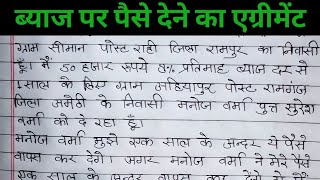 ब्याज पर पैसे देने का एग्रीमेंट
ग्राम सीमान पोस्ट राही जिला रामपुर का निवासी
हूँ। मैं 50 हजार रूपये 8% प्रतिमाह ब्याज दर से
1 साल के लिए ग्राम अहियापुर पोस्ट रामगंज
जिला अमेठी के निवासी मनोज वर्मा पुत्र सुरेश
वर्मा को दे रहा हूँ।
मनोज वर्मा मुझे एक साल के अन्दर ये पैसे
वापस कर देंगे। अगर मनोज वर्मा ने मेरे पैसे
एक साल के अन्दर वापस